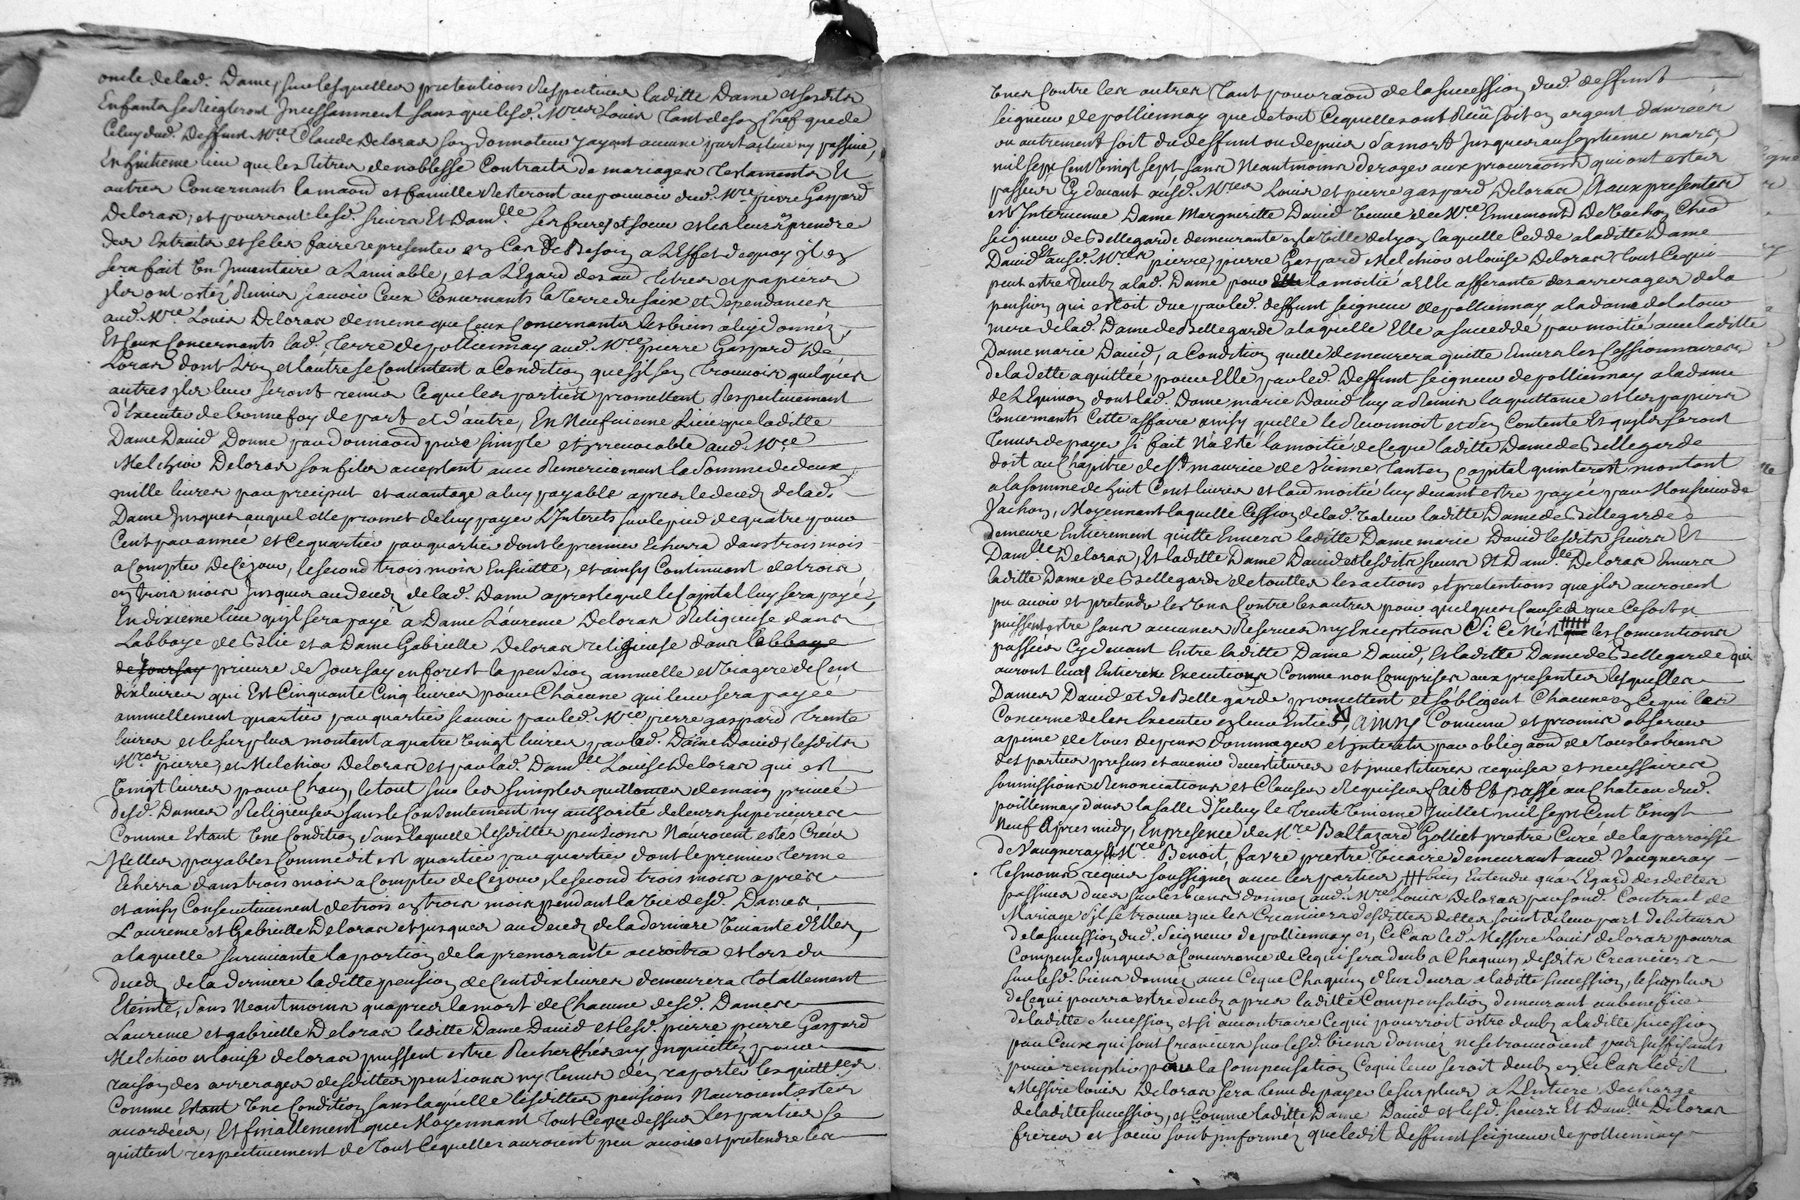 oncle de lad. Dame, sur lesquelles pretentions Respectives laditte Dame et sesdits
Enfants se Regleront Incessamment sans que lesd. Mres Louis tant de son Chef que de
Celuy dud. Deffunt Mre Claude Deloras son donnateur y ayent aucune part active ny passive,
En huitieme lieu que les titres de noblesse Contraits de mariages testaments Et
autres Concernants la maond et famille Resteront au pouvoir dud. Mre pierre Gaspard
Deloras, et pourront lesd. sieurs Et Damlle ses freres et soeur et les leurs prendre
des Extraits et se les faire representer en Cas de Besoin a L'Effet de quoy il en
sera fait Un Inventaire a L'amiable, et a L'Egard desd titres et papiers
ils ont estéz Remis scavoir Ceux Concernants la terre du saix et dependances
aud. Mre Louis Deloras de meme que Ceux Concernants les biens a luy donnéz,
Et Ceux Concernants lad. terre de pollienay aud. Mre pierre Gaspard De
Loras dont L'un et l'autre se Contentent a Condition que s'il s'en trouvoit quelques
autres ils leur seront remis Ce que les parties promettent Respectivement
d'Executer de bonne foy de part et d'autre, En Neufvieme Lieu que laditte
Dame David Donne par donnaond pure simple et irrevocable aud. Mre
Melchior Deloras son fils acceptant avec Remerciement la Somme de deux
mille livres par preciput et avantage a luy payable apres le decez de lad.
Dame Jusques auquel elle promet de luy payer L'Interets sur le pied de quatre pour
Cent par année et Ce quartier par quartier dont le premier Echerra dans trois mois
a Compter De Ce jour, le second trois mois Ensuitte, et ainsy Continuant de trois
en trois mois Jusques au decez de lad. Dame apres lequel le Capital luy sera payé,
En dixieme lieu qu'il sera payé à Dame Láurence Deloras Religieuse dans
L'abbaye de et a Dame Gabrielle Deloras religieuse dans l'abbaye
de Joursay prieuré de Joursay en forest la pension annuelle et viagere de Cent
dix livres qui Est Cinquante Cinq livres pour Chacune qui leur sera payée
annuellement quartier par quartier scavoir par led. Mre pierre gaspard trente
livres et le surplus montant a quatre vingt livres par lad. Dame David, lesdits
Mres pierre, et Melchior Deloras et par lad. Damlle Louise Deloras qui est
vingt livres pour Chacun, le tout sur les simples quittances de main privée
desd. Dames Religieuses sans le Consentement ny authorité de leurs superieures
Comme Estant Une Condition sans laquelle lesdittes pensions N'auroient estés Créés
Icelles payables Comme dit est quartier par quartier dont le premier terme
Echerra dans trois mois a Compter de Ce jour, le second trois mois apres
et ainsy Consecutivement de trois en trois mois pendant la vie desd. Dames
Laurence et Gabrielle Deloras et jusques au decez de la derniere vivante d'Elles,
a laquelle survivante la portion de la premorante accroitra et lors du
decez de la derniere laditte pension de Cent dix livres demeurera totallement
Eteinte, sans Neantmoins qu'apres la mort de Chacune desd. Dames
Laurence et gabrielle Deloras laditte Dame David et lesd. pierre pierre Gaspard
Melchior et louise deloras puissent estre Recherchés ny Inquiettez pour
raison des arrerages desdittes pensions ny tenus d'en raporter les quittances
Comme Estant Une Condition sans laquelle lesdittes pensions N'auroient estés
accordées, Et finallement que Moyennant tout Ce que dessus les parties se
quittent respectivement de tout Ce quelles auroient peu avoir et pretendre les
Unes Contre les autres tant pour raond de la succession dud. deffunt
seigneur de pollienay que de tout Ce quelles ont Reçû soit en argent danrées
ou autrement soit du deffunt ou depuis sa mort Jusques au septieme mars
mil sept Cent vingt sept sans Neantmoins deroger aux procuraonds qui ont estés
passées Cy devant ausd. Mres Louis et pierre gaspard Deloras, Et aux presentes
est Intervenue Dame Margueritte David veuve de Mre Ennemond De Vachon Ched
seigneur de Bellegarde demeurante en la ville de Lyon laquelle Cedde a laditte Dame
David Et ausd. Mres pierre, pierre Gaspard Melchior et louise Deloras tout Ce qui
peut estre deub a lad. Dame pour la moitié a Elle afferante des arrerages de la
pension qui estoit due par led. deffunt seigneur de pollienay a la dame de
mere de lad. Dame de Bellegarde a laquelle Elle a succeddé par moitié avec laditte
Dame marie David, a Condition quelle demeurera quitte Envers les Cessionnaires
de la dette aquittée pour Elle par led. Deffunt seigneur de pollienay a la dame
de L'Equinon dont lad. Dame marie David luy a Remis la quittance et les papiers
Concernants Cette affaire ainsy quelle le Reconnoit et s'en Contente Et qu'ils seront
tenus de payer si fait N'a Esté la moitié de Ceque laditte Dame de Bellegarde
doit au Chapitre de St. maurice de Vienne tant en Capital qu'interest montant
a la somme de huit Cent livres et l'autre moitié luy devant estre payée par Monsieur de
Vachon, Moyennant laquelle Cession de lad. valeur laditte Dame de Bellegarde
demeure Entierement quitte Envers laditte Dame marie David lesdits sieurs Et
Damlle Deloras, Et laditte Dame David et lesdits sieurs Et Damlle Deloras Envers
laditte Dame de Bellegarde de touttes les actions et pretentions quels auroient
pu avoir et pretendre les Uns Contre les autres pour quelques Causes que Ce soit
puissent estre sans aucunes Reserves ny Exceptions Si Ce N'est que les Conventions
passées Cy devant Entre laditte Dame David, Et laditte Dame de Bellegarde qui
auront leurs Entieres Executions Comme non Comprises aux presentes lesquelles
Dames David et de Bellegarde promettent et s'obligent Chacune en Ce qui les
Concerne de les Executer en leur Entier, ainsy Convenu et promis observer
a peine de tous depens dommages et interets par obligaond de tous les biens
des parties presens et avenir devestitures et investitures requises et necessaires
soumissions Renonciations et Clauses Requises fait et passé au Chateau dud.
poillennay dans la salle d'Iceluy le Trente Unieme Juillet mil sept Cent vingt
Neuf Apres midy En presence de Mre Baltazard Golliet prestre Curé de la parroisse
de Vaugneray Et Mre Benoit favre prestre vicaire demeurant aud. Vaugneray
tesmoins requis soussignez avec les parties, bien Entendu qu'a L'Egard des dettes
passives dues sur les biens donnez aud. Mre Louis Deloras par sond. Contract de
Mariage s'il se trouve que les Creanciers desdittes dettes soient de leur part debiteurs
de la succession dud. Seigneur de pollienay en Ce Cas led. Messire Louis deloras pourra
Compenser Jusques a Concurrance de Ce qui sera deub a Chaqun desdits Creanciers
sur lesd. biens donnez avec Ce que Chaqun d'Eux devra a laditte succession, le surplus
de Ce qui pourra estre deub apres laditte Compensation demeurant au benefice
de laditte succession et si au contraire Ce qui pourroit estre deub a laditte succession
par Ceux qui sont Creanciers sur lesd. biens donnez ne se trouvoient pas suffisants
pour remplir par la Compensation Ce qui leur seroit deub en Ce Cas ledit
Messire louis Deloras sera tenu de payer le surplus a L'Entiere decharge
de laditte succession, et Comme laditte Dame David et lesd. sieurs Et Damlle Deloras
freres et soeur sont informéz que ledit deffunt seigneur de pollienay